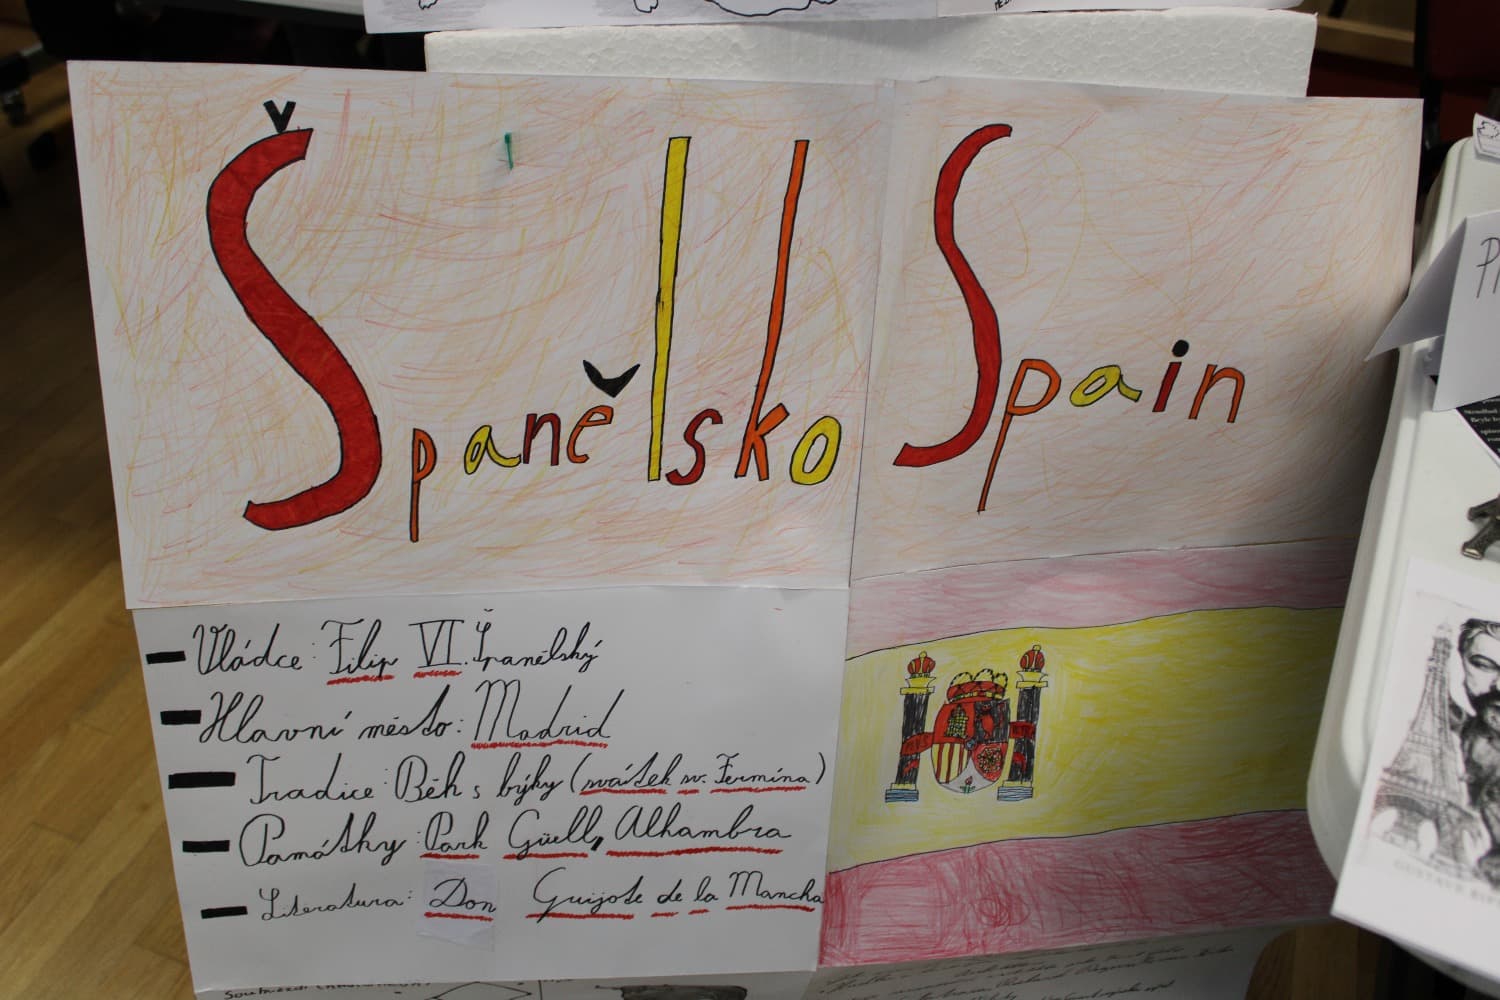 Španělsko
Spain
Vládce: Filip VI. Španělský
Hlavní město: Madrid
Tradice: Běh s býky (svátek sv. Fermína)
Památky: Park Güell, Alhambra
Literatura: Don Guijote de la Mancha